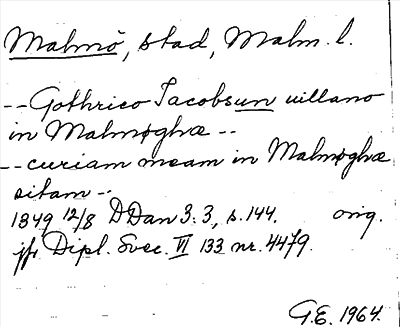 Malmö, stad, Malm. l.
-- Gothrico Jacobsun uillano
in Malmøghæ --
-- curiam meam in Malmøghæ
sitam --
1349 12/8 DDan 3:3, s. 144. orig.
jfr Dipl. Svec. VI 133 nr. 4479.
G.E. 1964.